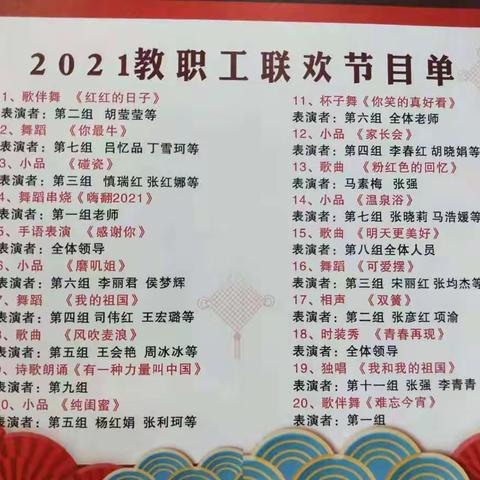 2021教职工联欢节目单
1、歌伴舞 《红红的日子》
表演者：第二组 胡莹莹等
2、舞蹈 《你最牛》
表演者：第七组 吕忆品 丁雪珂等
3、小品 《碰瓷》
表演者：第三组 慎瑞红 张红娜等
4、舞蹈串烧《嗨翻2021》
表演者：第一组老师
5、手语表演 《感谢你》
表演者：全体领导
6、小品 《磨叽姐》
表演者：第六组 李丽君 侯梦辉
7、舞蹈 《我的祖国》
表演者：第四组 司伟红 王宏璐等
8、歌曲 《风吹麦浪》
表演者：第五组 王会艳 周冰冰等
9、诗歌朗诵《有一种力量叫中国》
表演者：第九组
10、小品 《纯闺蜜》
表演者：第五组 杨红娟 张利珂等
11、杯子舞《你笑的真好看》
表演者：第六组 全体老师
12、小品 《家长会》
表演者：第四组 李春红 胡晓娟等
13、歌曲 《粉红色的回忆》
表演者：马素梅 张强
14、小品 《温泉浴》
表演者：第七组 张晓莉 马浩媛等
15、歌曲 《明天更美好》
表演者：第八组全体人员
16、舞蹈 《可爱摆》
表演者：第三组 宋丽红 张均杰等
17、相声 《双簧》
表演者：第二组 张彦红 项渝
18、时装秀 《青春再现》
表演者：全体领导
19、独唱 《我和我的祖国》
表演者：第十一组 张强 李青青
20、歌伴舞《难忘今宵》
表演者：第一组